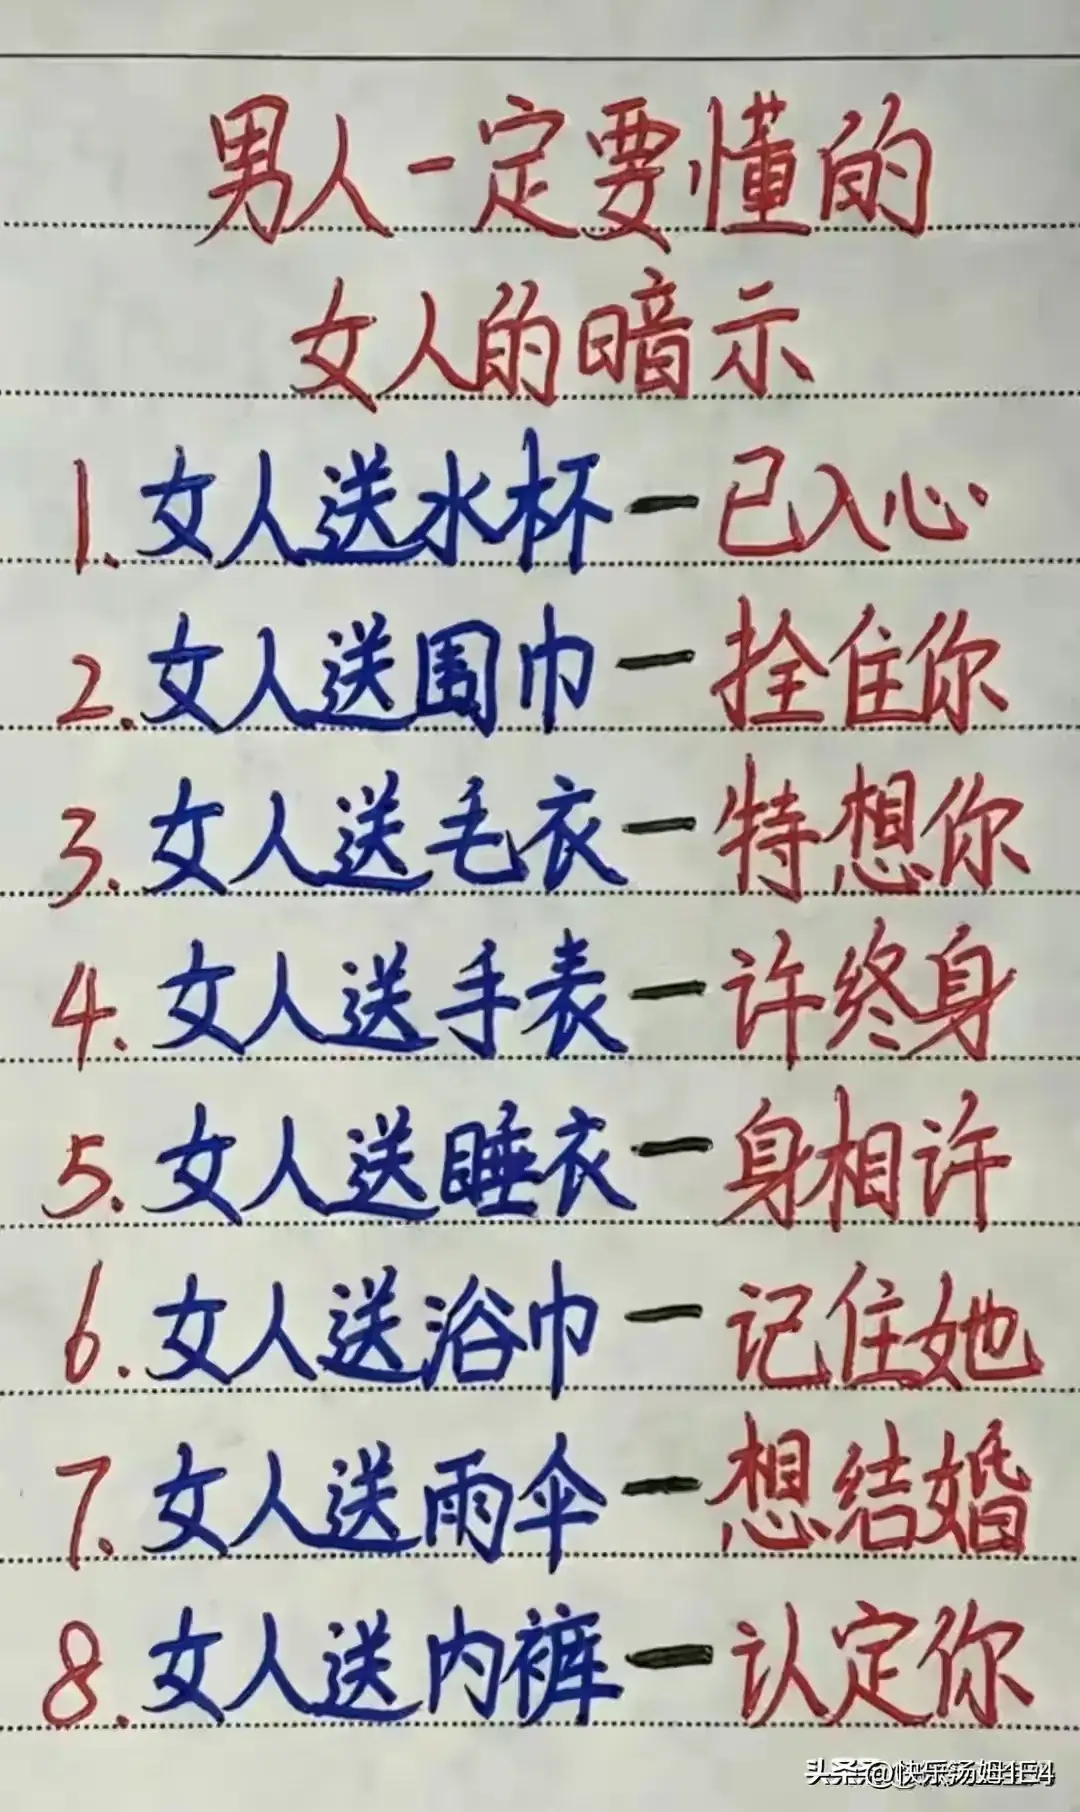 男人一定要懂的
女人的暗示
1.女人送水杯一已入心
2.女人送围巾一拴住你
3.女人送毛衣一特想你
4.女人送手表一许终身
5.女人送睡衣一身相许
6.女人送浴巾一记住她
7.女人送雨伞一想结婚
8.女人送内裤一认定你
头条@快乐汤姆1E4